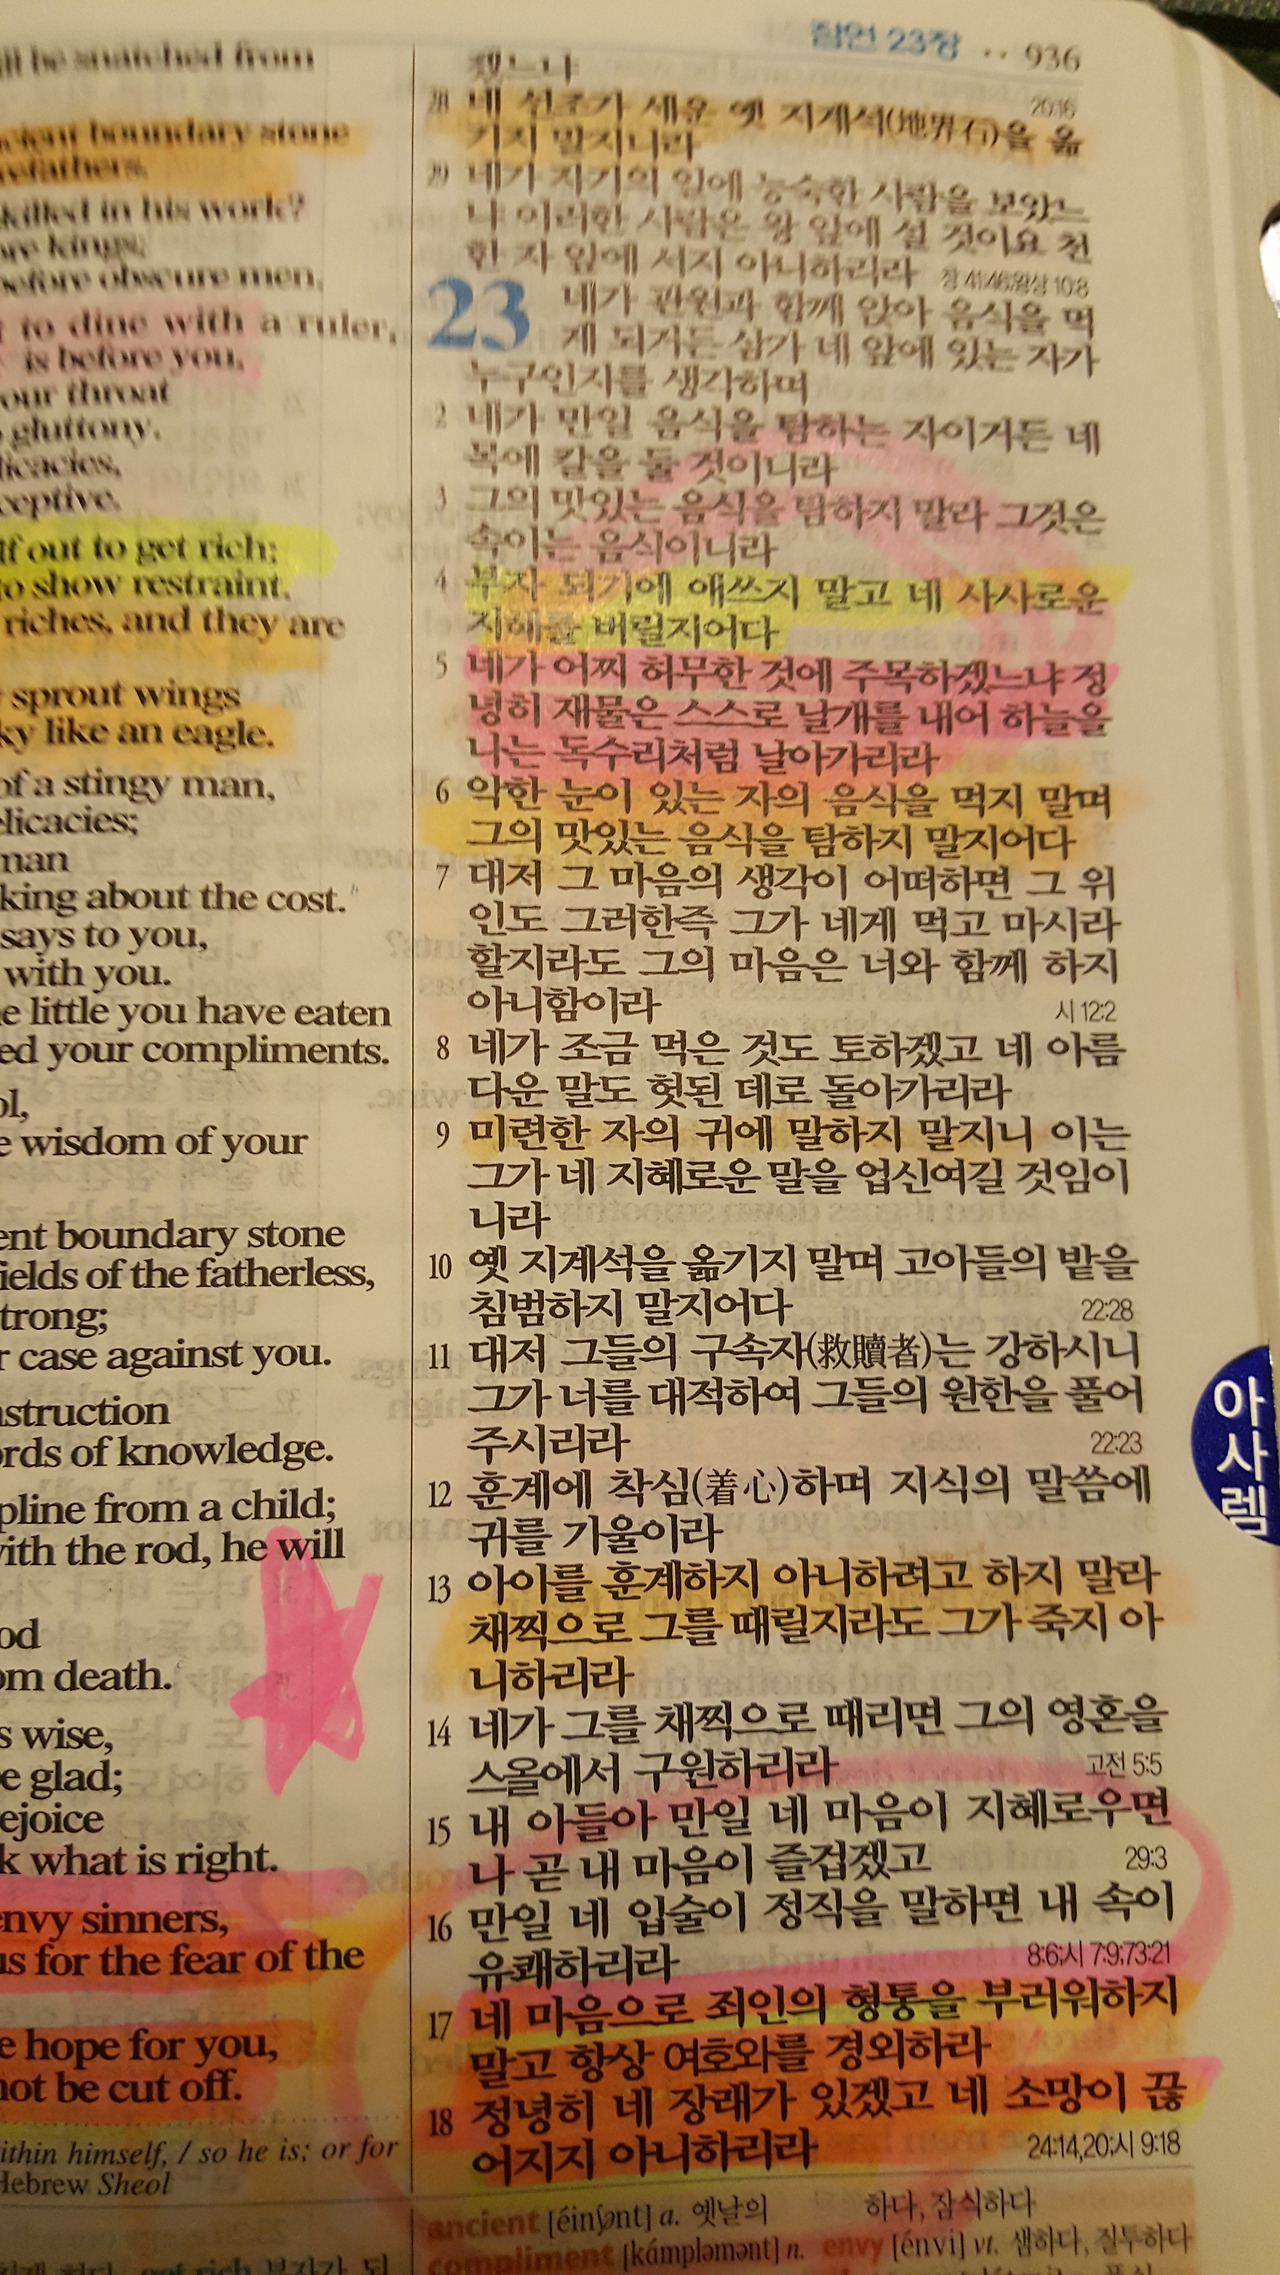 잠언 23장 ·· 936
ll be snatched from
ancient boundary stone
refathers.
skilled in his work?
ore kings;
before obscure men.
to dine with a ruler,
is before you,
our throat
gluttony.
licacies,
ceptive.
lf out to get rich;
to show restraint.
riches, and they are
sprout wings
ky like an eagle.
of a stingy man,
elicacies;
man
king about the cost.
says to you,
with you.
e little you have eaten
ed your compliments.
ol,
e wisdom of your
ent boundary stone
ields of the fatherless,
trong;
r case against you.
nstruction
ords of knowledge.
pline from a child;
with the rod, he will
od
om death.
s wise,
e glad;
ejoice
k what is right.
envy sinners,
us for the fear of the
e hope for you,
not be cut off.
ithin himself, / so he is; or for
Hebrew Sheol
겠느냐
20:16
28 네 선조가 세운 옛 지계석(地界石)을 옮
기지 말지니라
29 네가 자기의 일에 능숙한 사람을 보았느
냐 이러한 사람은 왕 앞에 설 것이요 천
한 자 앞에 서지 아니하리라 창 41:46;왕상 10:8
23 네가 관원과 함께 앉아 음식을 먹
게 되거든 삼가 네 앞에 있는 자가
누구인지를 생각하며
2 네가 만일 음식을 탐하는 자이거든 네
목에 칼을 둘 것이니라
3 그의 맛있는 음식을 탐하지 말라 그것은
속이는 음식이니라
4 부자 되기에 애쓰지 말고 네 사사로운
지혜를 버릴지어다
5 네가 어찌 허무한 것에 주목하겠느냐 정
녕히 재물은 스스로 날개를 내어 하늘을
나는 독수리처럼 날아가리라
6 악한 눈이 있는 자의 음식을 먹지 말며
그의 맛있는 음식을 탐하지 말지어다
7 대저 그 마음의 생각이 어떠하면 그 위
인도 그러한즉 그가 네게 먹고 마시라
할지라도 그의 마음은 너와 함께 하지
아니함이라 시 12:2
8 네가 조금 먹은 것도 토하겠고 네 아름
다운 말도 헛된 데로 돌아가리라
9 미련한 자의 귀에 말하지 말지니 이는
그가 네 지혜로운 말을 업신여길 것임이
니라
10 옛 지계석을 옮기지 말며 고아들의 밭을
침범하지 말지어다 22:28
11 대저 그들의 구속자(救贖者)는 강하시니
그가 너를 대적하여 그들의 원한을 풀어
주시리라 22:23
12 훈계에 착심(着心)하며 지식의 말씀에
귀를 기울이라
13 아이를 훈계하지 아니하려고 하지 말라
채찍으로 그를 때릴지라도 그가 죽지 아
니하리라
14 네가 그를 채찍으로 때리면 그의 영혼을
스올에서 구원하리라 고전 5:5
15 내 아들아 만일 네 마음이 지혜로우면
나 곧 내 마음이 즐겁겠고 29:3
16 만일 네 입술이 정직을 말하면 내 속이
유쾌하리라 8:6;시 7:9;73:21
17 네 마음으로 죄인의 형통을 부러워하지
말고 항상 여호와를 경외하라
18 정녕히 네 장래가 있겠고 네 소망이 끊
어지지 아니하리라 24:14,20;시 9:18
ancient [éinʃənt] a. 옛날의
compliment [kámpləmənt] n.
하다, 잠식하다
envy [énvi] vt. 샘하다, 질투하다
아사렘